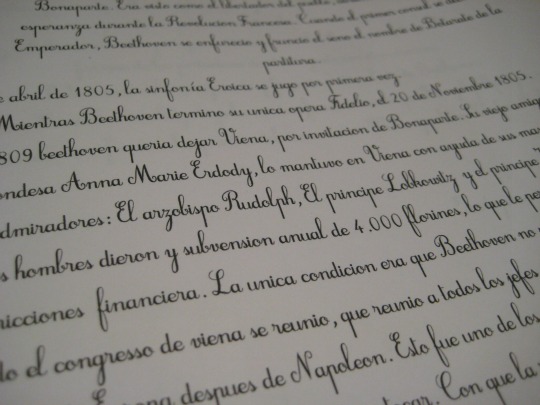 Bonaparte. Era visto como el libertador del pueblo,
esperanza durante la Revolucion Francesa. Cuando el primer consul se
Emperador, Beethoven se enfurecio y el nombre de de la
partitura.
abril de 1805, la sinfonía Eroica se jugo por primera vez.
Mientras Beethoven termino su unica opera Fidelio, el 20 de Noviembre 1805.
809 beethoven queria dejar Viena, por invitacion de Bonaparte. Su viejo amig
ondesa Anna Marie Erdody, lo mantuvo en Viena con ayuda de sus mas
dmiradores: El arzobispo Rudolph, El principe Lobkowitz y el principe
s hombres dieron y subvension anual de 4.000 florines, lo que le pe
icciones financiera. La unica condicion era que Beethoven no
do el congresso de viena se reunio, que reunio a todos los jefes
despues de Napoleon. Esto fue uno de los
Con que la